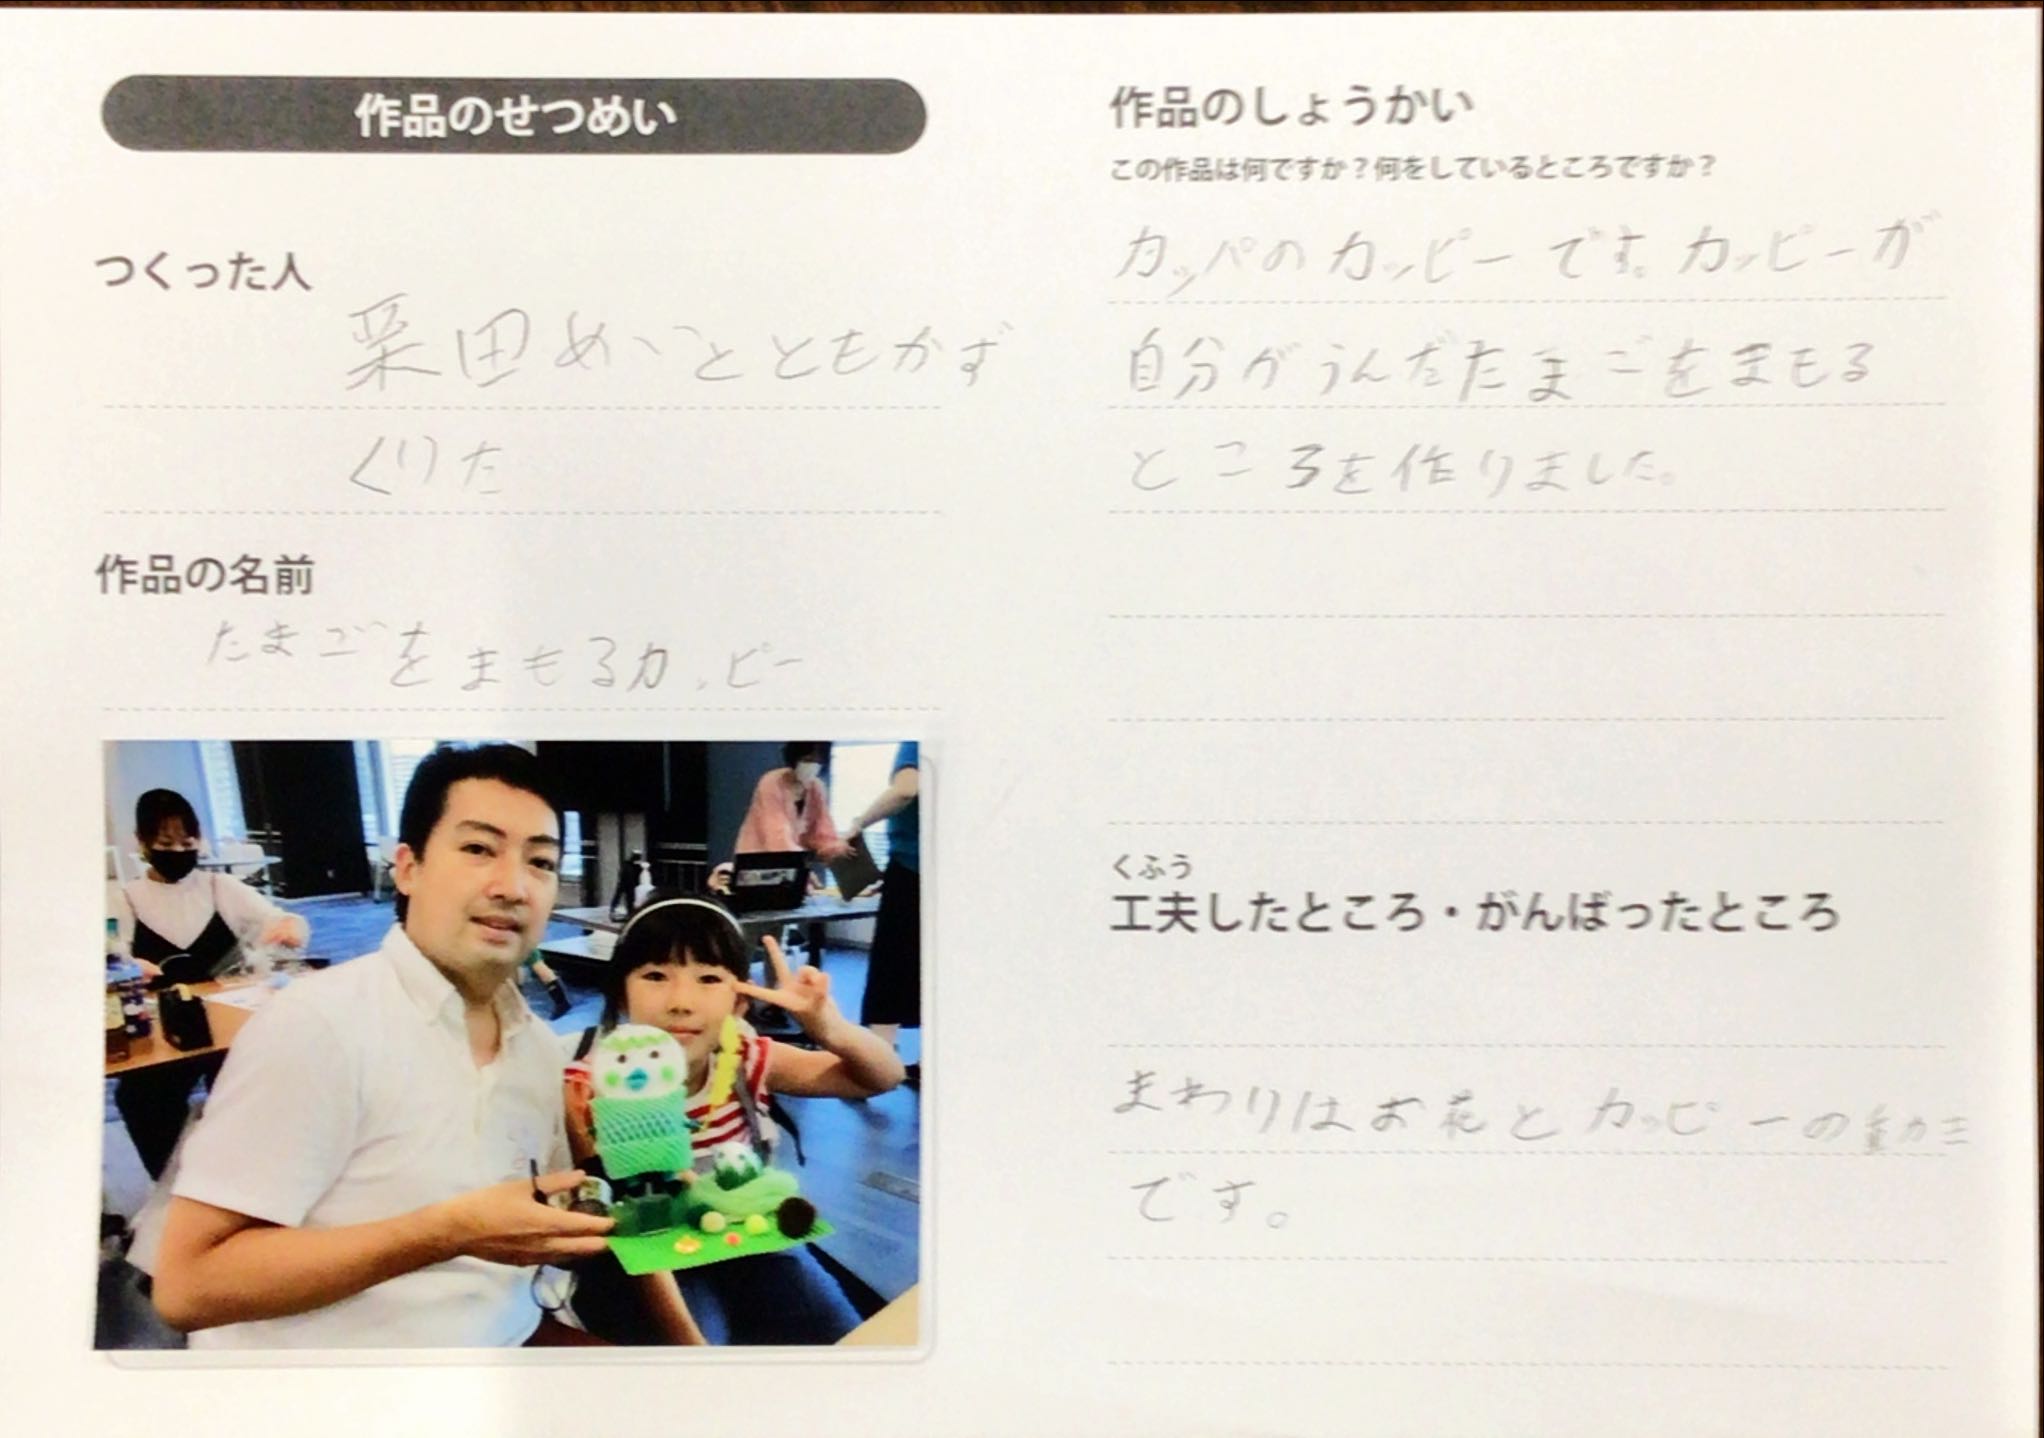 作品のせつめい
つくった人
栗田めいとともかず
くりた
作品の名前
たまごをまもるカッピー
作品のしょうかい
この作品は何ですか？何をしているところですか？
カッパのカッピーです。カッピーが
自分がうんだたまごをまもる
ところを作りました。
くふう
工夫したところ・がんばったところ
まわりはお花とカッピーの動き
です。